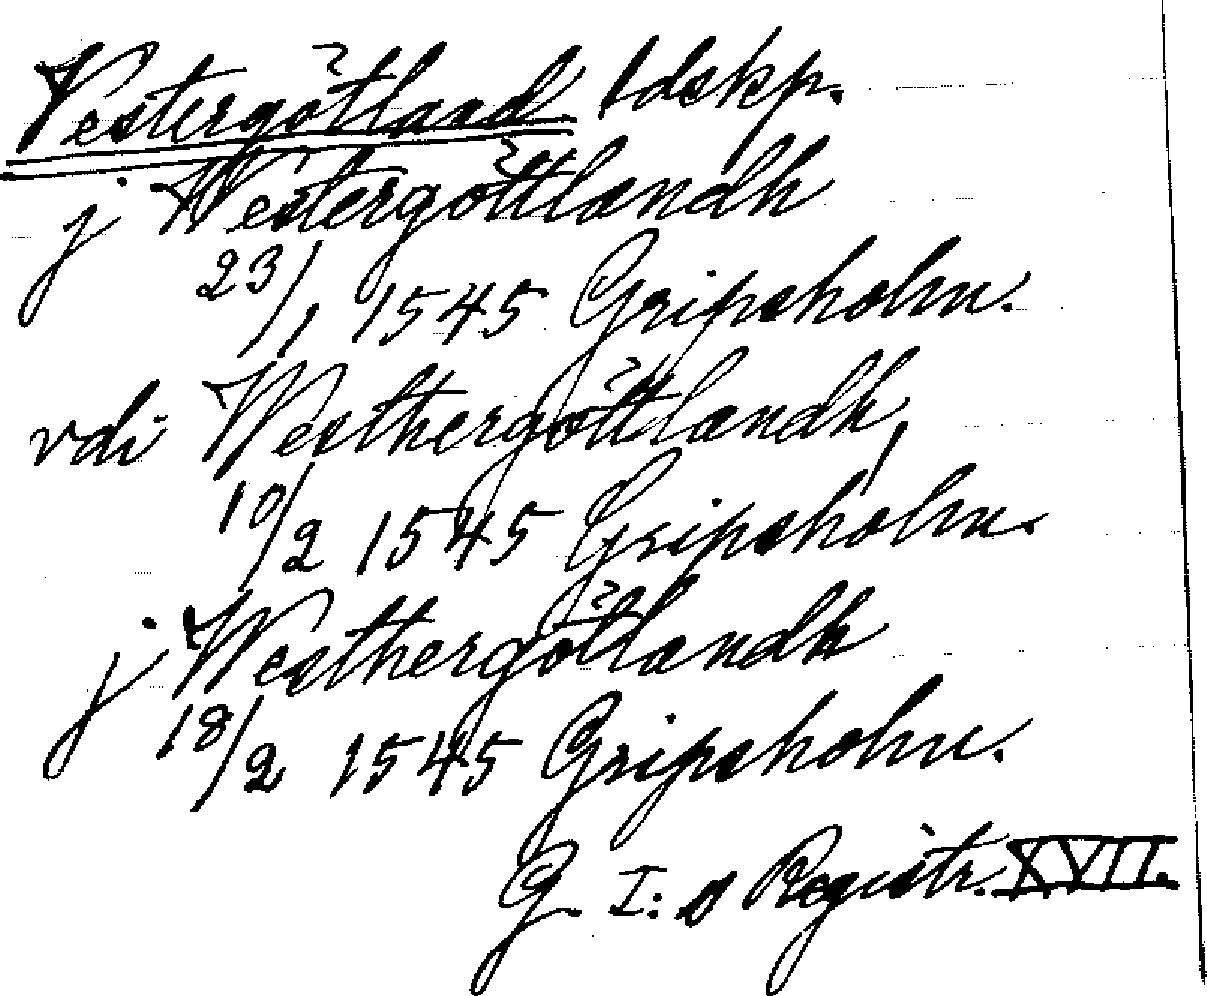 Vestergötland ldskp.
j Westergöttlandh
23/1 1545 Gripsholm.
vdi Westhergöttlandh,
10/2 1545 Gripsholm.
j Westhergötlandh
18/2 1545 Gripsholm.
G. I:s Registr. XVII.